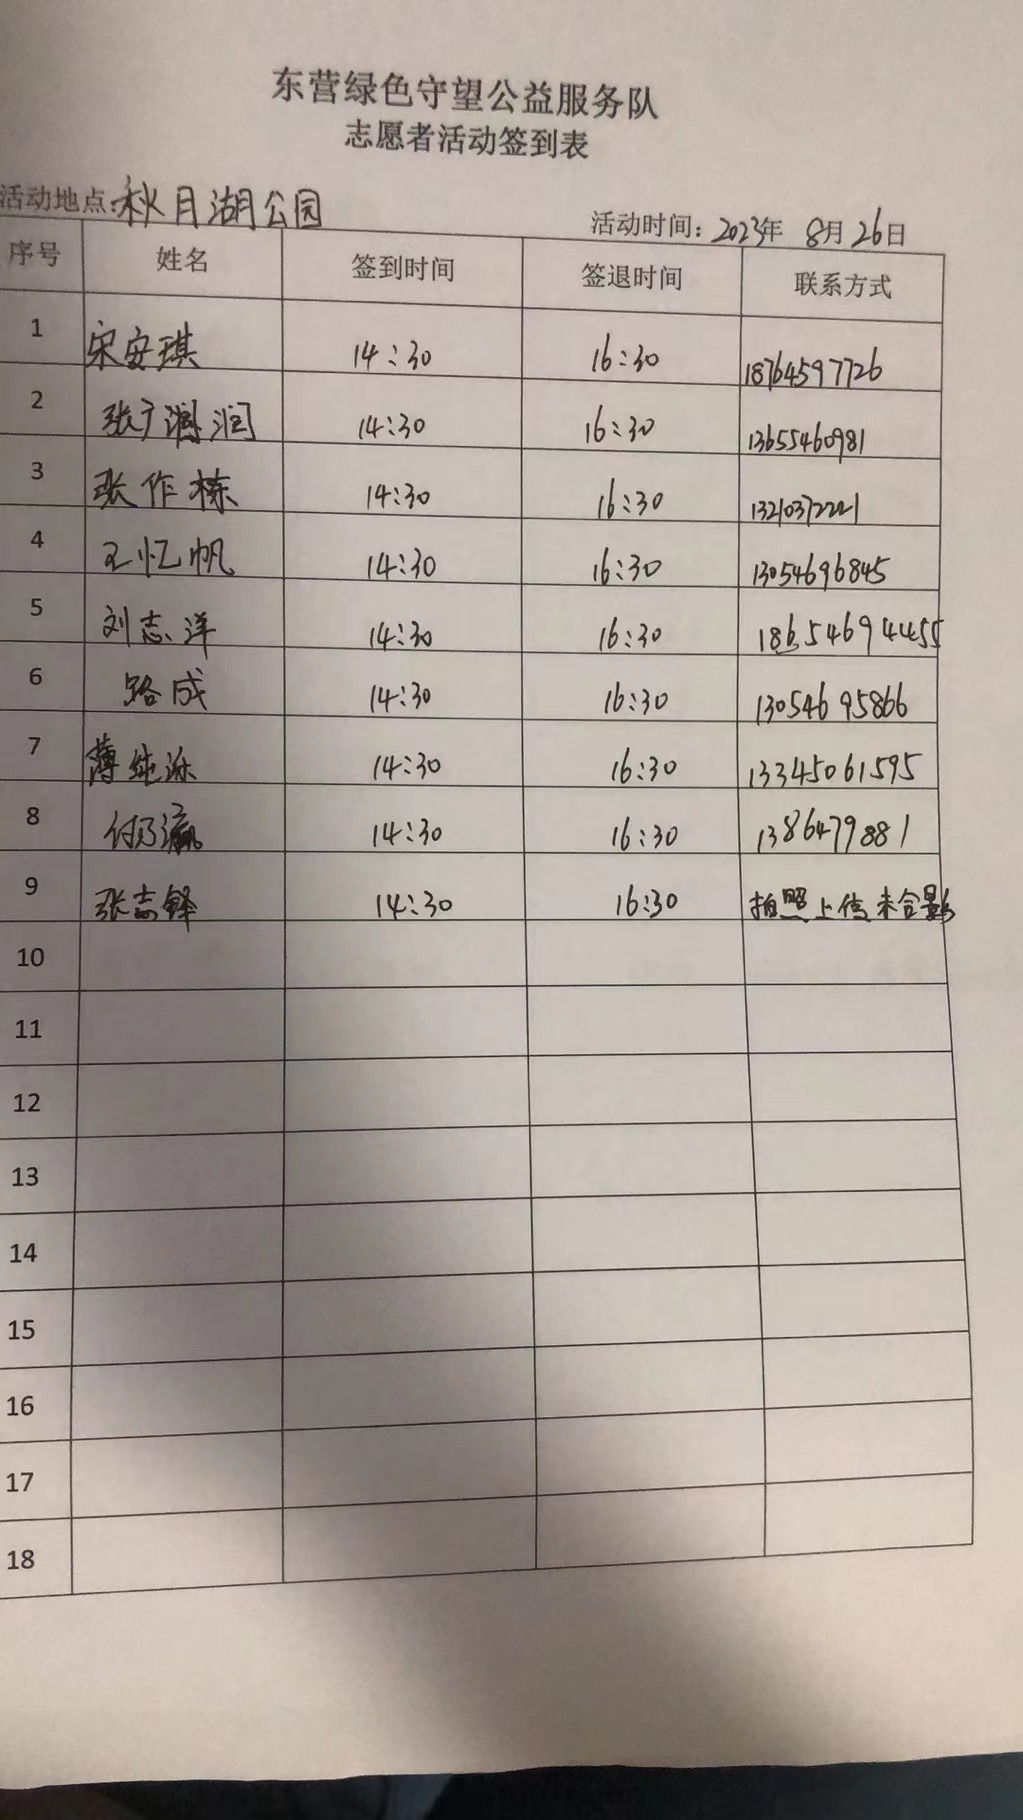 东营绿色守望公益服务队
志愿者活动签到表
活动地点:秋月湖公园 活动时间:2023年 8月26日
序号 姓名 签到时间 签退时间 联系方式
1 宋安琪 14:30 16:30 18764597726
2 张广润 14:30 16:30 13655460981
3 张作栋 14:30 16:30
4 王忆帆 14:30 16:30 13054696845
5 刘志洋 14:30 16:30 18654694455
6 路成 14:30 16:30 13054695866
7 薄纯 14:30 16:30 13345061595
8 付乃瀛 14:30 16:30 1386479881
9 张志铎 14:30 16:30 拍照上传未合影
10
11
12
13
14
15
16
17
18